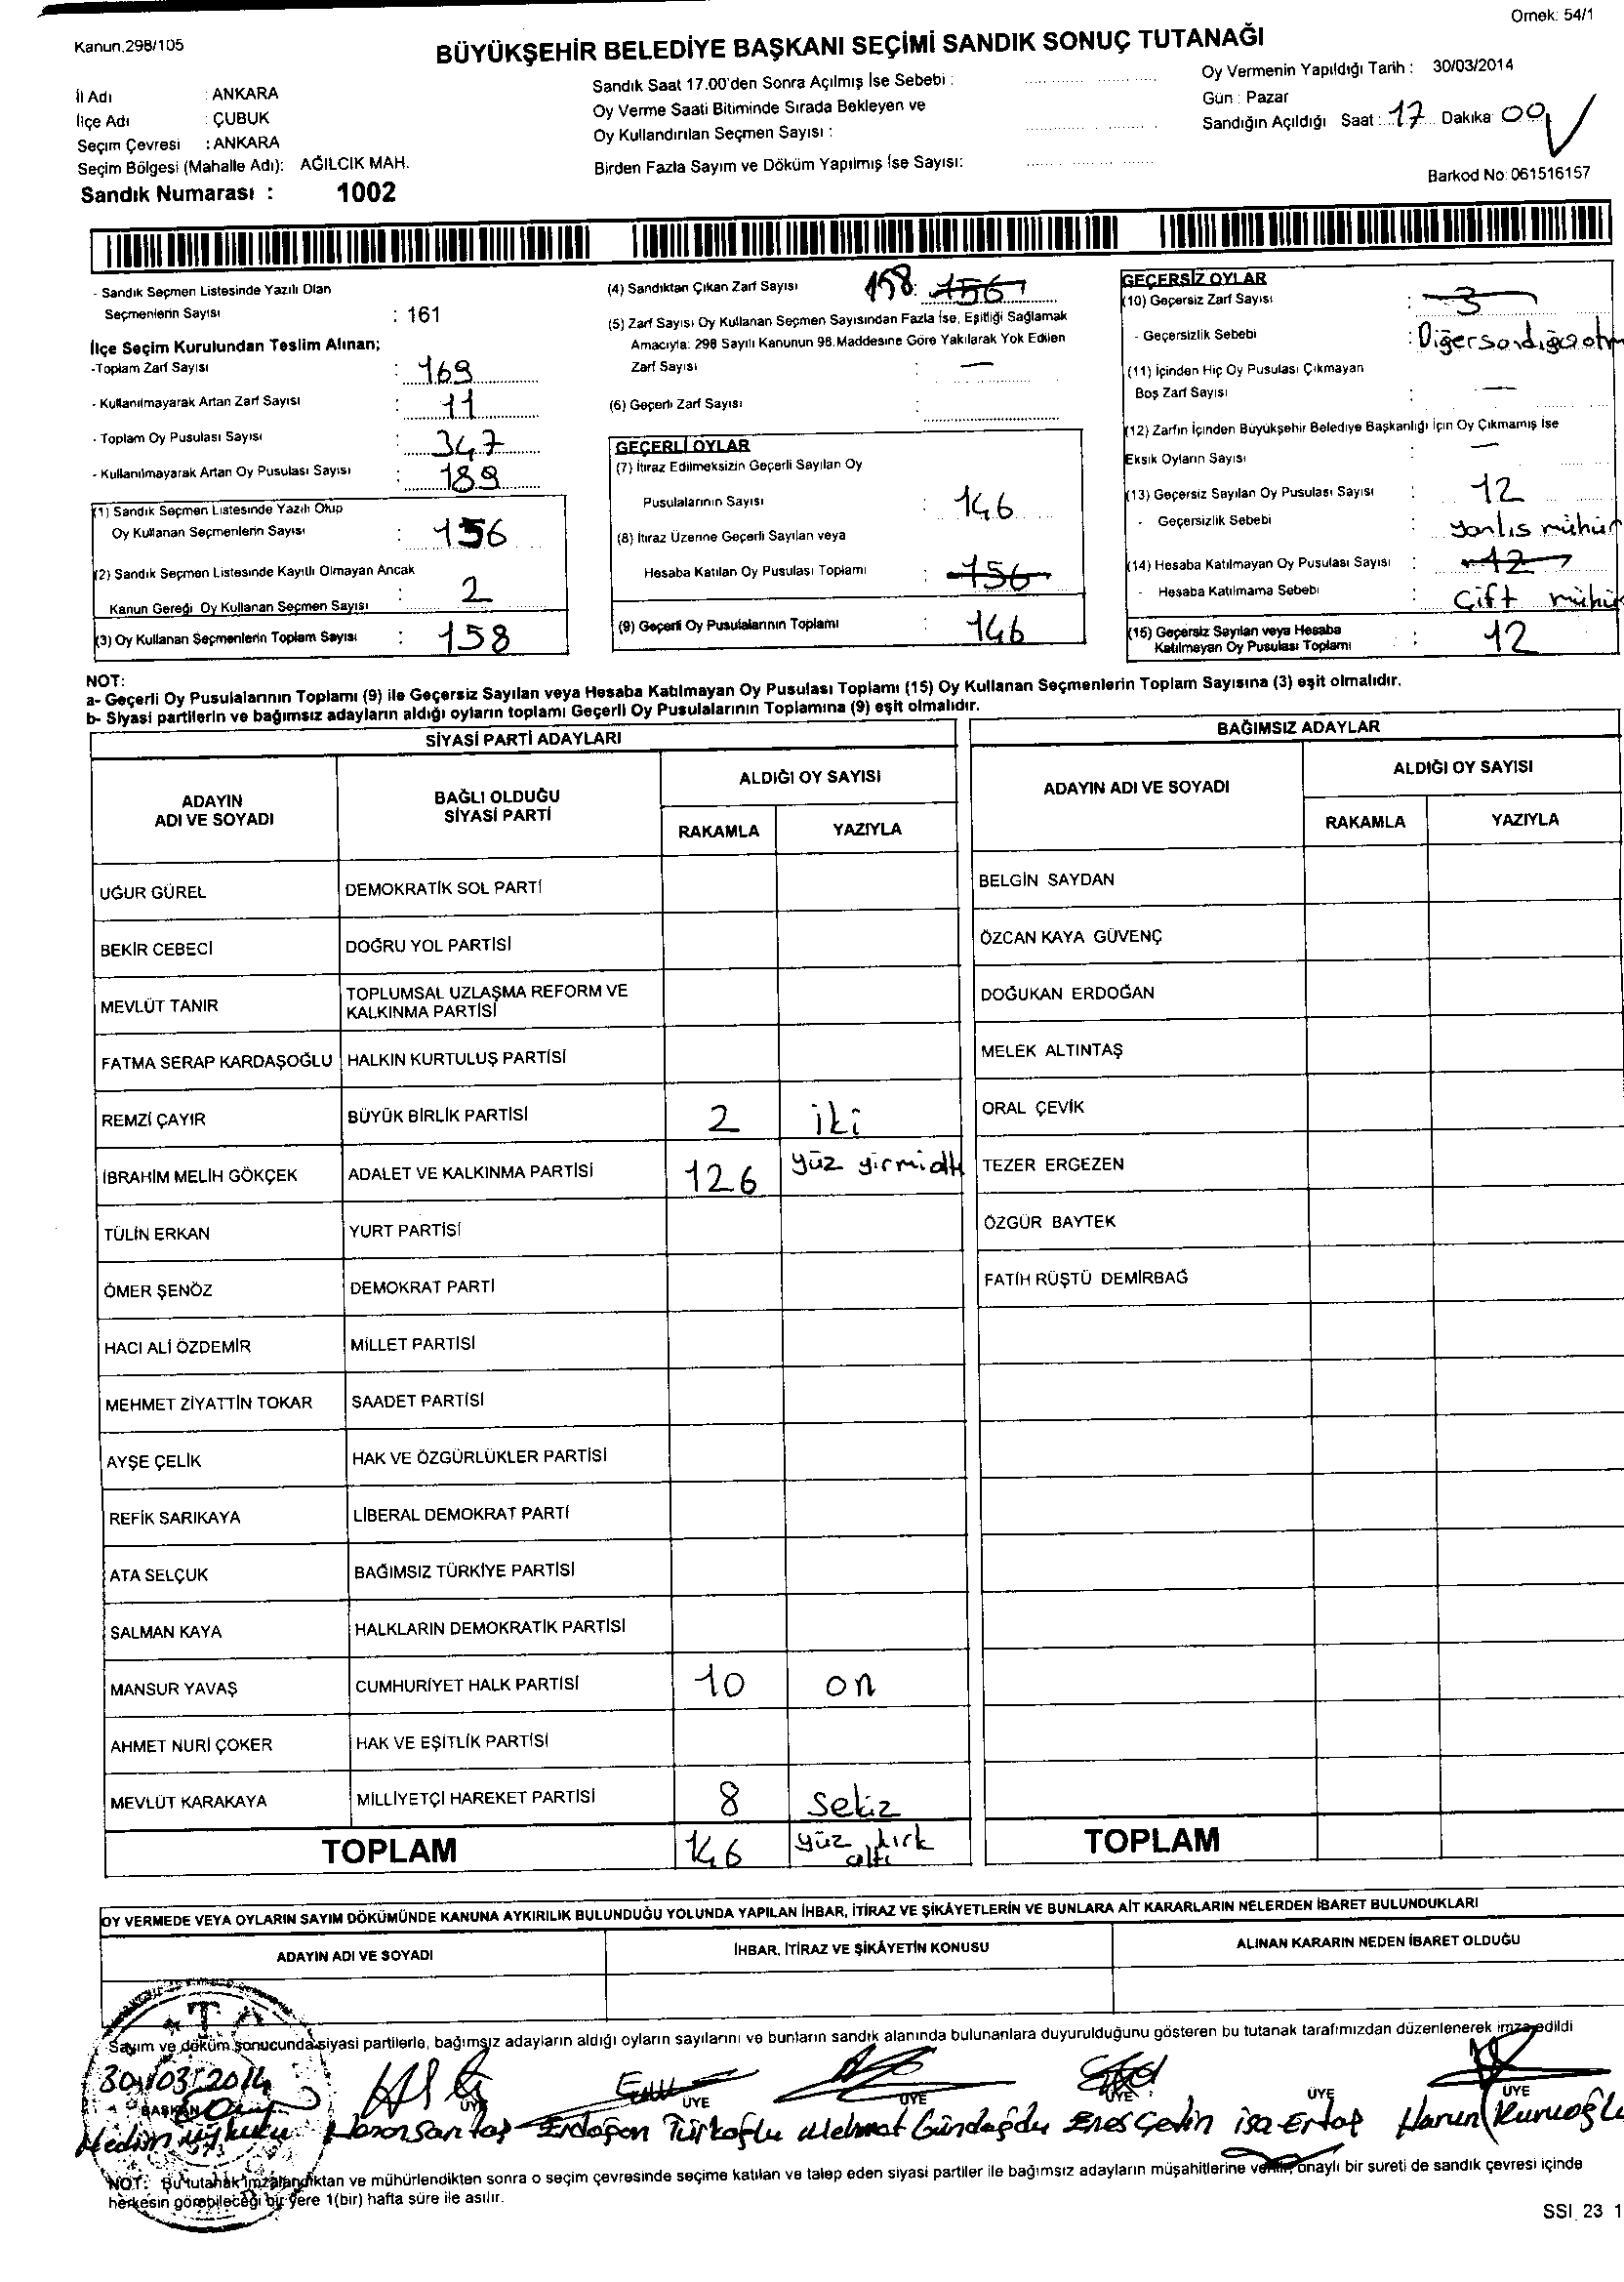 Örnek: 54/1
Kanun.298/105
BÜYÜKŞEHİR BELEDİYE BAŞKANI SEÇİMİ SANDIK SONUÇ TUTANAĞI
İl Adı : ANKARA
İlçe Adı : ÇUBUK
Seçim Çevresi : ANKARA
Seçim Bölgesi (Mahalle Adı): AĞILCIK MAH.
Sandık Numarası : 1002
Sandık Saat 17.00'den Sonra Açılmış İse Sebebi :
Oy Verme Saati Bitiminde Sırada Bekleyen ve
Oy Kullandırılan Seçmen Sayısı :
Birden Fazla Sayım ve Döküm Yapılmış İse Sayısı:
Oy Vermenin Yapıldığı Tarih : 30/03/2014
Gün : Pazar
Sandığın Açıldığı Saat : 17 Dakika 00
Barkod No: 061516157
- Sandık Seçmen Listesinde Yazılı Olan
Seçmenlerin Sayısı : 161
İlçe Seçim Kurulundan Teslim Alınan;
-Toplam Zarf Sayısı : 169
- Kullanılmayarak Artan Zarf Sayısı : 11
- Toplam Oy Pusulası Sayısı : 347
- Kullanılmayarak Artan Oy Pusulası Sayısı : 189
(1) Sandık Seçmen Listesinde Yazılı Olup
Oy Kullanan Seçmenlerin Sayısı : 156
(2) Sandık Seçmen Listesinde Kayıtlı Olmayan Ancak
Kanun Gereği Oy Kullanan Seçmen Sayısı : 2
(3) Oy Kullanan Seçmenlerin Toplam Sayısı : 158
(4) Sandıktan Çıkan Zarf Sayısı : 158 156
(5) Zarf Sayısı Oy Kullanan Seçmen Sayısından Fazla İse, Eşitliği Sağlamak
Amacıyla: 298 Sayılı Kanunun 98.Maddesine Göre Yakılarak Yok Edilen
Zarf Sayısı : —
(6) Geçerli Zarf Sayısı :
GEÇERLİ OYLAR
(7) İtiraz Edilmeksizin Geçerli Sayılan Oy
Pusulalarının Sayısı : 146
(8) İtiraz Üzerine Geçerli Sayılan veya
Hesaba Katılan Oy Pusulası Toplamı : 156
(9) Geçerli Oy Pusulalarının Toplamı : 146
GEÇERSİZ OYLAR
(10) Geçersiz Zarf Sayısı : 3
- Geçersizlik Sebebi :
(11) İçinden Hiç Oy Pusulası Çıkmayan
Boş Zarf Sayısı : —
(12) Zarfın İçinden Büyükşehir Belediye Başkanlığı İçin Oy Çıkmamış İse
Eksik Oyların Sayısı : —
(13) Geçersiz Sayılan Oy Pusulası Sayısı : 12
- Geçersizlik Sebebi : yanlıs mühür
(14) Hesaba Katılmayan Oy Pusulası Sayısı : 12
- Hesaba Katılmama Sebebi : Çift mühür
(15) Geçersiz Sayılan veya Hesaba
Katılmayan Oy Pusulası Toplamı : 12
NOT:
a- Geçerli Oy Pusulalarının Toplamı (9) ile Geçersiz Sayılan veya Hesaba Katılmayan Oy Pusulası Toplamı (15) Oy Kullanan Seçmenlerin Toplam Sayısına (3) eşit olmalıdır.
b- Siyasi partilerin ve bağımsız adayların aldığı oyların toplamı Geçerli Oy Pusulalarının Toplamına (9) eşit olmalıdır.
SİYASİ PARTİ ADAYLARI
ADAYIN ADI VE SOYADI BAĞLI OLDUĞU SİYASİ PARTİ ALDIĞI OY SAYISI
RAKAMLA YAZIYLA
UĞUR GÜREL DEMOKRATİK SOL PARTİ
BEKİR CEBECİ DOĞRU YOL PARTİSİ
MEVLÜT TANIR TOPLUMSAL UZLAŞMA REFORM VE KALKINMA PARTİSİ
FATMA SERAP KARDAŞOĞLU HALKIN KURTULUŞ PARTİSİ
REMZİ ÇAYIR BÜYÜK BİRLİK PARTİSİ 2 iki
İBRAHİM MELİH GÖKÇEK ADALET VE KALKINMA PARTİSİ 126 yüz yirmi altı
TÜLİN ERKAN YURT PARTİSİ
ÖMER ŞENÖZ DEMOKRAT PARTİ
HACI ALİ ÖZDEMİR MİLLET PARTİSİ
MEHMET ZİYATTİN TOKAR SAADET PARTİSİ
AYŞE ÇELİK HAK VE ÖZGÜRLÜKLER PARTİSİ
REFİK SARIKAYA LİBERAL DEMOKRAT PARTİ
ATA SELÇUK BAĞIMSIZ TÜRKİYE PARTİSİ
SALMAN KAYA HALKLARIN DEMOKRATİK PARTİSİ
MANSUR YAVAŞ CUMHURİYET HALK PARTİSİ 10 on
AHMET NURİ ÇOKER HAK VE EŞİTLİK PARTİSİ
MEVLÜT KARAKAYA MİLLİYETÇİ HAREKET PARTİSİ 8 Sekiz
TOPLAM 146 yüz kırk altı
BAĞIMSIZ ADAYLAR
ADAYIN ADI VE SOYADI ALDIĞI OY SAYISI
RAKAMLA YAZIYLA
BELGİN SAYDAN
ÖZCAN KAYA GÜVENÇ
DOĞUKAN ERDOĞAN
MELEK ALTINTAŞ
ORAL ÇEVİK
TEZER ERGEZEN
ÖZGÜR BAYTEK
FATİH RÜŞTÜ DEMİRBAĞ
TOPLAM
OY VERMEDE VEYA OYLARIN SAYIM DÖKÜMÜNDE KANUNA AYKIRILIK BULUNDUĞU YOLUNDA YAPILAN İHBAR, İTİRAZ VE ŞİKÂYETLERİN VE BUNLARA AİT KARARLARIN NELERDEN İBARET BULUNDUKLARI
ADAYIN ADI VE SOYADI İHBAR, İTİRAZ VE ŞİKÂYETİN KONUSU ALINAN KARARIN NEDEN İBARET OLDUĞU
Sayım ve döküm sonucunda siyasi partilerle, bağımsız adayların aldığı oyların sayılarını ve bunların sandık alanında bulunanlara duyurulduğunu gösteren bu tutanak tarafımızdan düzenlenerek imza edildi
30/03/2014
BAŞKAN ÜYE ÜYE ÜYE ÜYE ÜYE ÜYE
Nedim Hasan Sarıtaş Erdoğan Türkoğlu Mehmet Gündoğdu Enes Çetin isa Ertaş Harun Kuruoğlu
NOT: Bu tutanak imzalandıktan ve mühürlendikten sonra o seçim çevresinde seçime katılan ve talep eden siyasi partiler ile bağımsız adayların müşahitlerine verilir, onaylı bir sureti de sandık çevresi içinde
herkesin görebileceği bir yere 1(bir) hafta süre ile asılır.
SSI 23 1